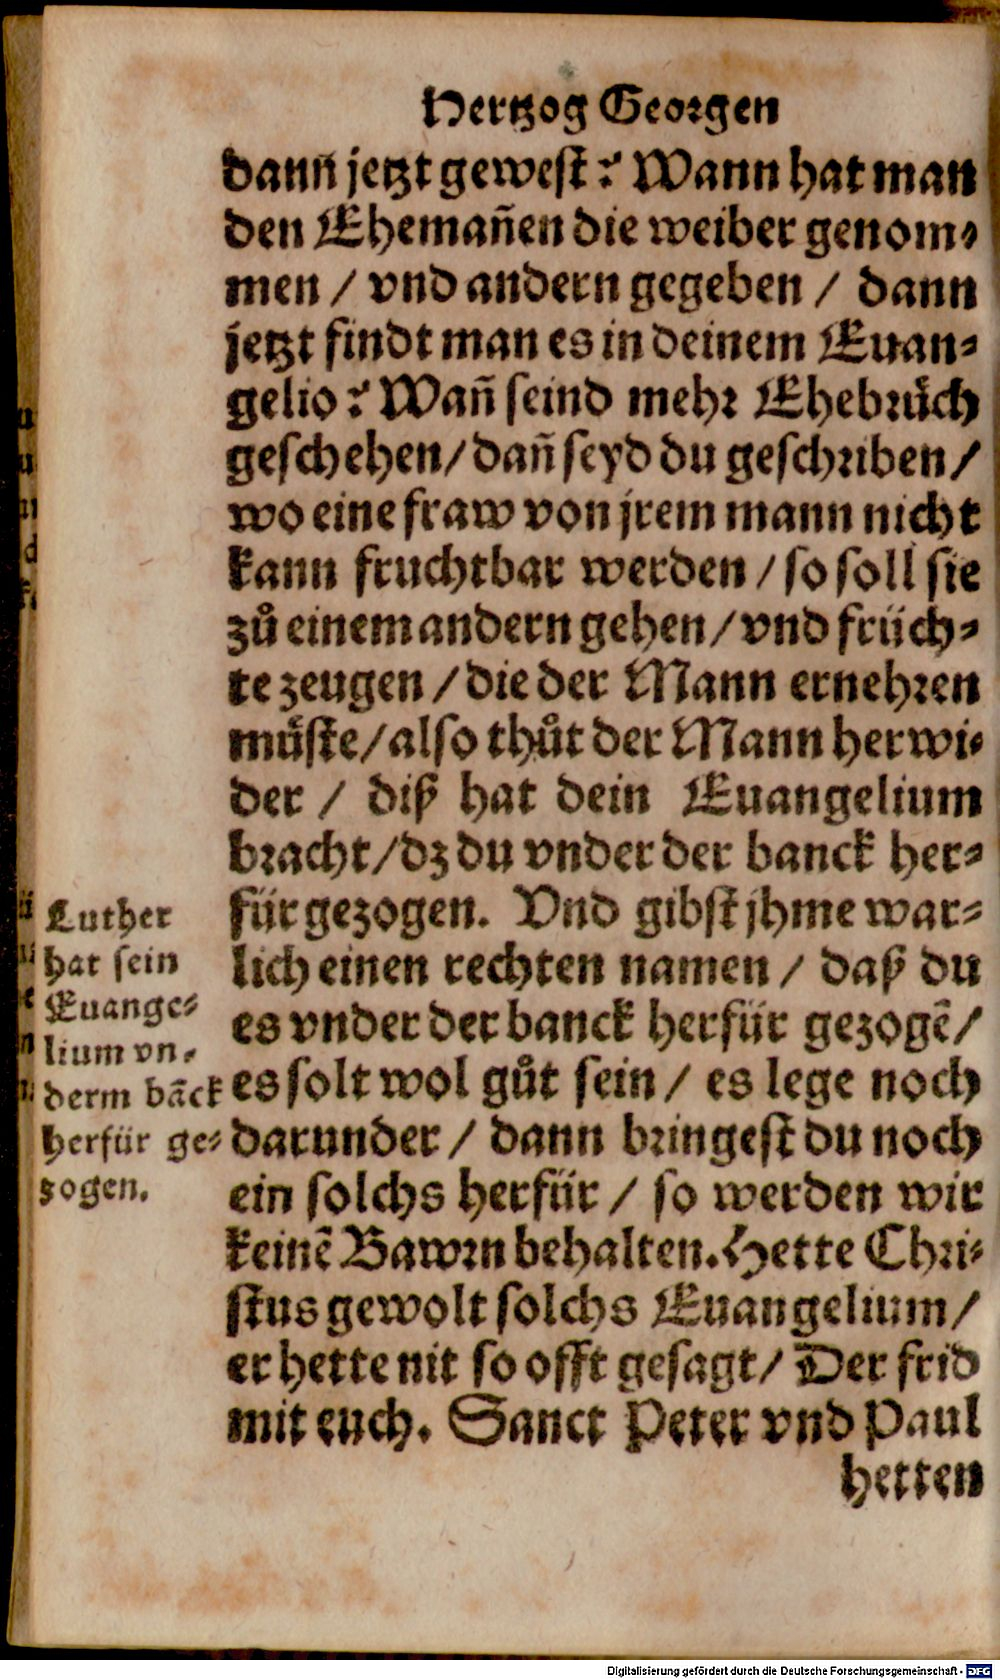 Hertzog Georgen
dann jetzt gewest? Wann hat man
den Ehemañen die weiber genom⸗
men / vnd andern gegeben / dann
jetzt findt man es in deinem Euan⸗
gelio? Wañ seind mehr Ehebrüch
geschehen/ dañ seyd du geschriben/
wo eine fraw von jrem mann nicht
kann fruchtbar werden / so soll sie
zů einem andern gehen/ vnd früch⸗
te zeugen / die der Mann ernehren
müste/ also thůt der Mann herwi⸗
der / diß hat dein Euangelium
bracht/ dz du vnder der banck her⸗
für gezogen. Vnd gibst jhme war⸗
lich einen rechten namen / daß du
es vnder der banck herfür gezogē/
es solt wol gůt sein / es lege noch
darunder / dann bringest du noch
ein solchs herfür / so werden wir
keinē Bawrn behalten. Hette Chri⸗
stus gewolt solchs Euangelium /
er hette nit so offt gesagt/ Der frid
mit euch. Sanct Peter vnd Paul
hetten
Luther
hat sein
Euange⸗
lium vn⸗
derm bāck
herfür ge⸗
zogen.
Digitalisierung gefördert durch die Deutsche Forschungsgemeinschaft - DFG